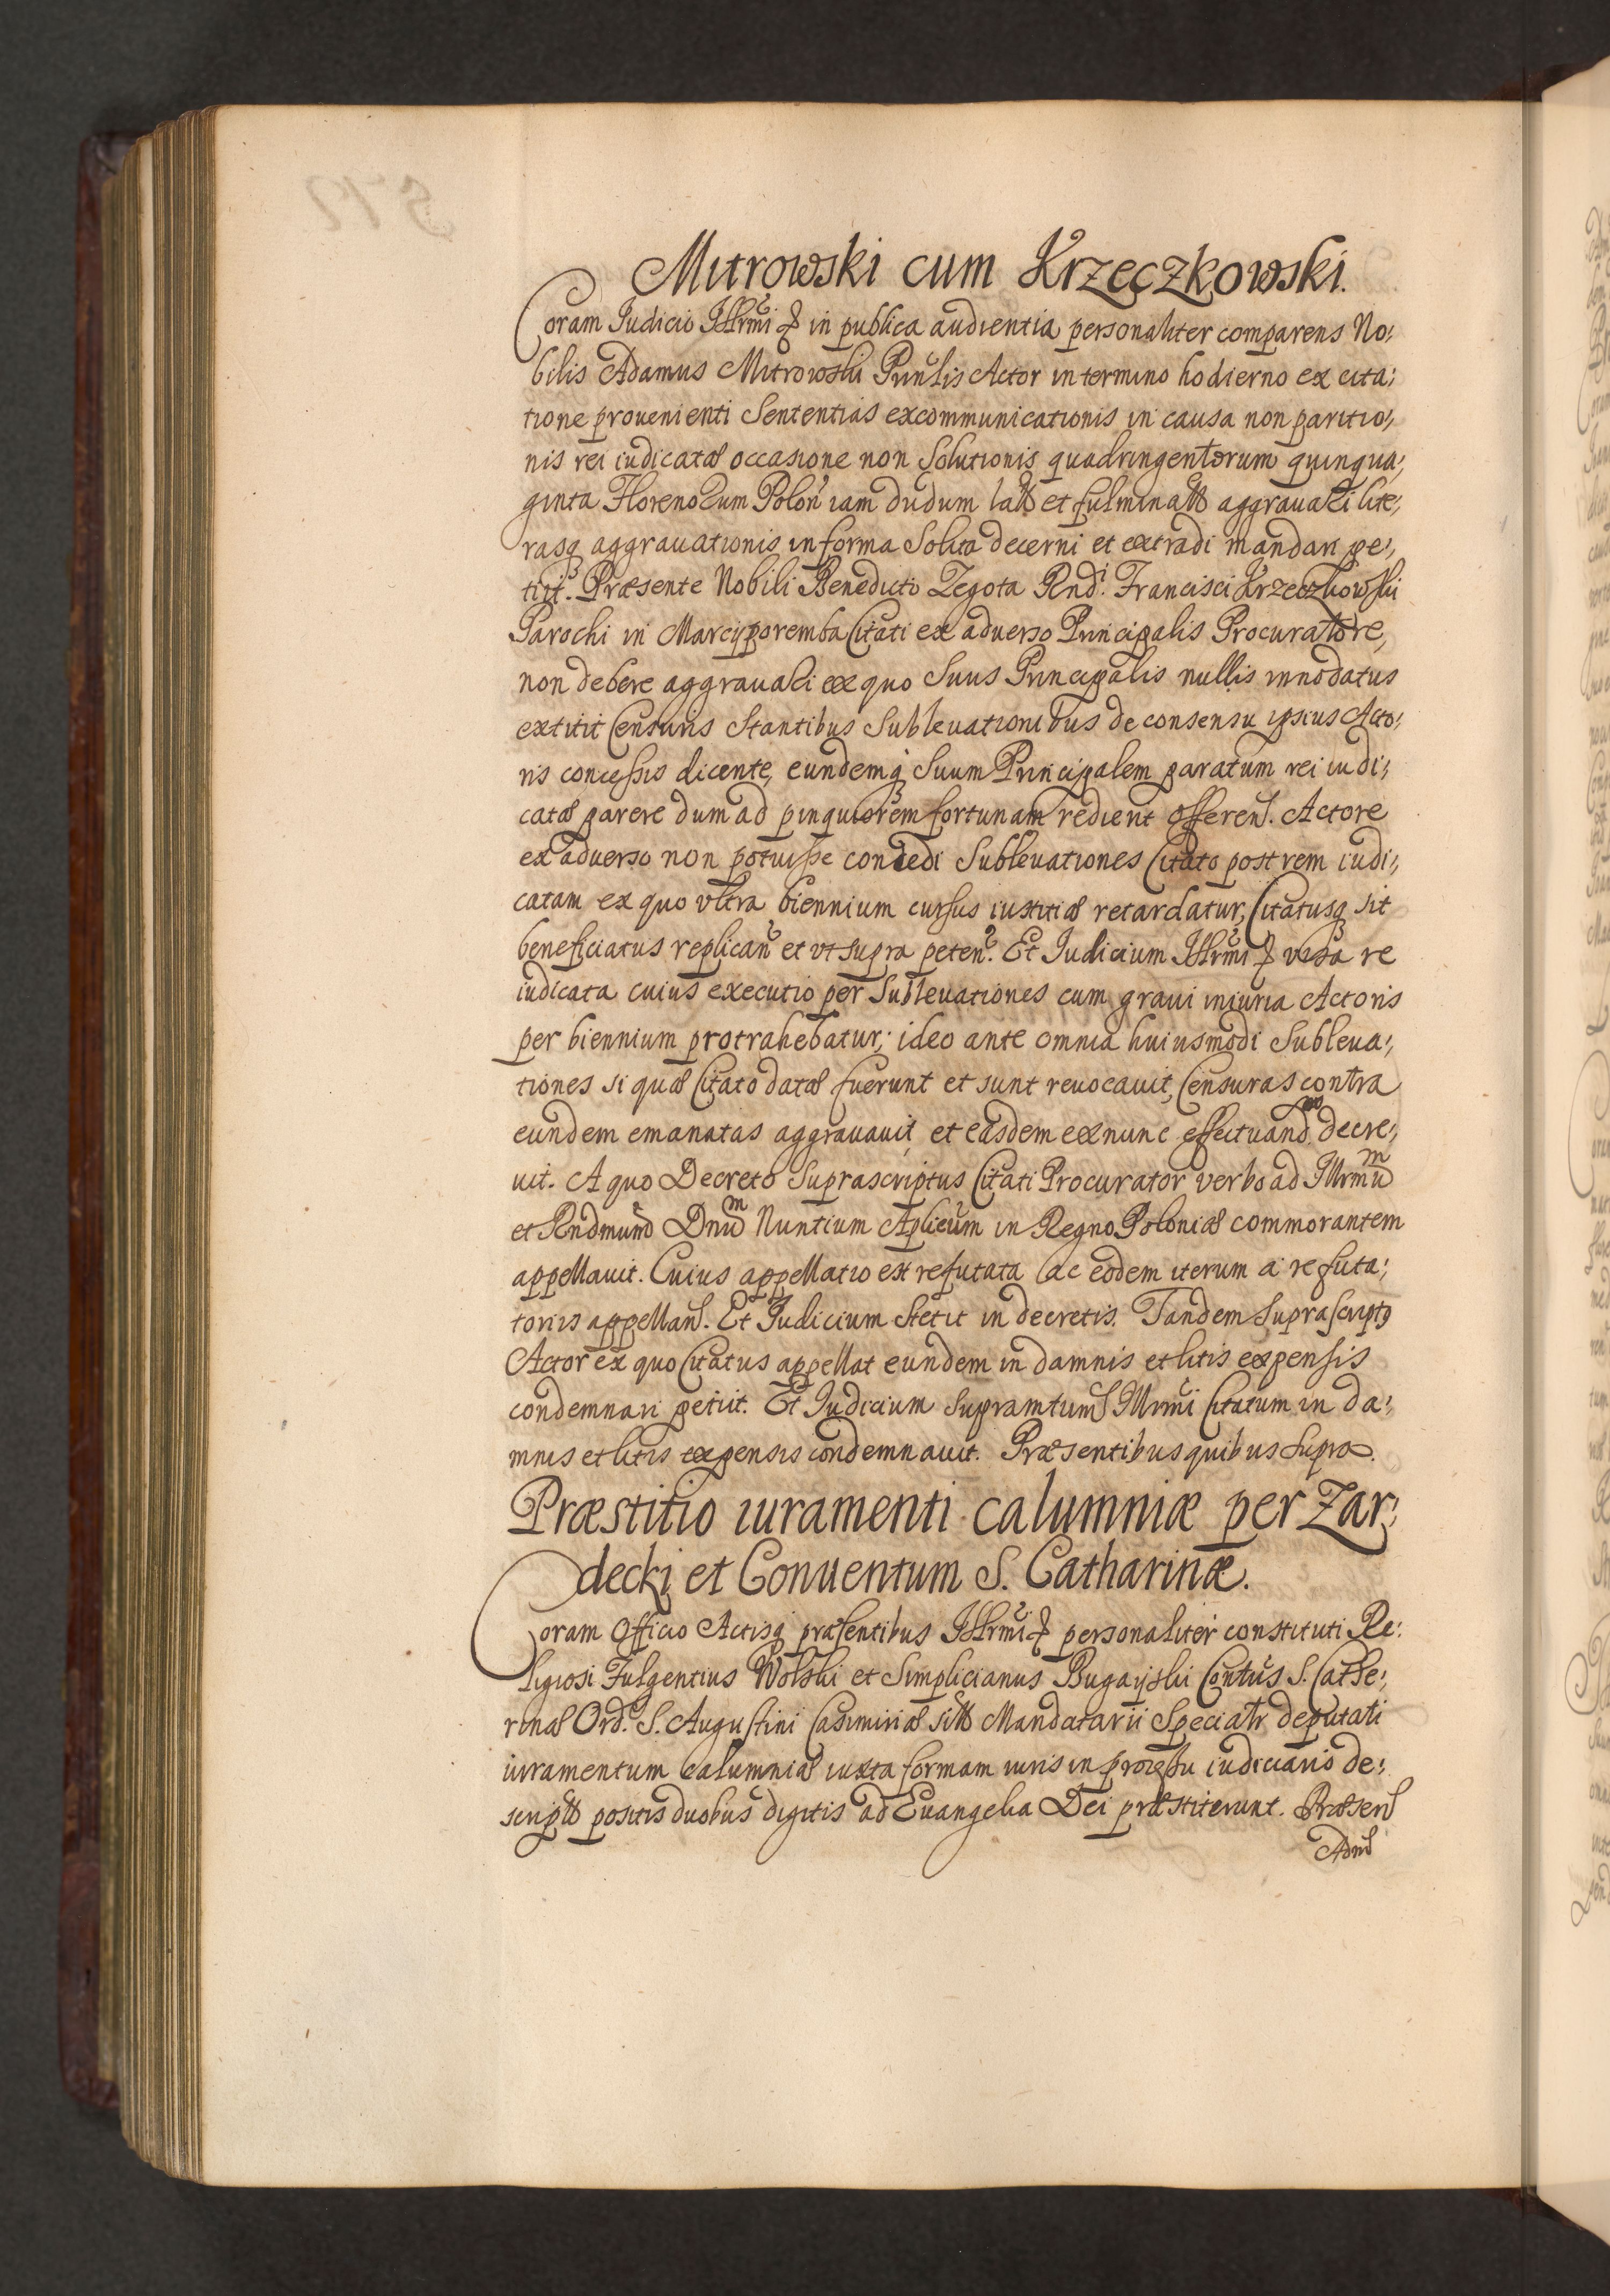 Mitrowski cum Krzeczkowski.
Coram Judicio Illrmi & in publica audientia personaliter comparens No:
bilis Adamus Mitrowski Prinlis Actor in termino hodierno ex cita:
tione prouenienti Sententias excommunicationis in causa non paritio:
nis rei iudicatæ occasione non Solutionis quadringentorum quinqua:
ginta Florenorum Polon iam dudum latas et fulminatas aggrauari lite:
rasq aggrauationis in forma Solita decerni et extradi mandari pe:
tiit. Præsente Nobili Benedicto Zegota Rndi Francisci Krzeczkowski
Parochi in Marcyporemba Citati ex aduerso Principalis Procuratore,
non debere aggrauari ex quo Suus Principalis nullis innodatus
extitit Censuris Stantibus Subleuationibus de consensu ipsius Acto:
ris concessis dicente, eundemq Suum Principalem paratum rei iudi:
catæ parere dum ad pinguiorem fortunam redierit offeren. Actore
ex aduerso non potuisse concedi Subleuationes Citato post rem iudi:
catam ex quo vltra biennium cursus iustitiæ retardatur, Citatusq sit
beneficiatus replican et vt supra peten. Et Iudicium Illrmi & visa re
iudicata cuius executio per Subleuationes cum graui iniuria Actoris
per biennium protrahebatur; ideo ante omnia huiusmodi Subleua:
tiones si quæ Citato datæ fuerunt et sunt reuocauit, Censuras contra
eundem emanatas aggrauauit et easdem ex nunc effectuand decre:
uit. A quo Decreto Suprascriptus Citati Procurator verbo ad Illrmum
et Rndmum Dnum Nuntium Aplicum in Regno Poloniæ commorantem
appellauit. Cuius appellatio est refutata ac eodem iterum a refuta:
toriis appellan. Et Judicium Stetit in decretis. Tandem Suprascriptus
Actor ex quo Citatus appellat eundem in damnis et litis expensis
condemnari petiit. Et Judicium Supramtum Illrmi Citatum in da:
mnis et litis expensis condemnauit. Præsentibus quibus Supra.
Præstitio iuramenti calumniæ per Zar:
decki et Conuentum S. Catharinæ.
Coram Officio Actisq præsentibus Illrmi & personaliter constituti Re:
ligiosi Fulgentius Wolski et Simplicianus Bugayski Contus S. Cathe:
rinæ Ord. S. Augustini Casimiriæ siti Mandatarii Specialr deputati
iuramentum calumniæ iuxta formam iuris in processu iudiciario de:
scriptas positis duobus digitis ad Euangelia Dei præstiterunt. Præsen
Adm